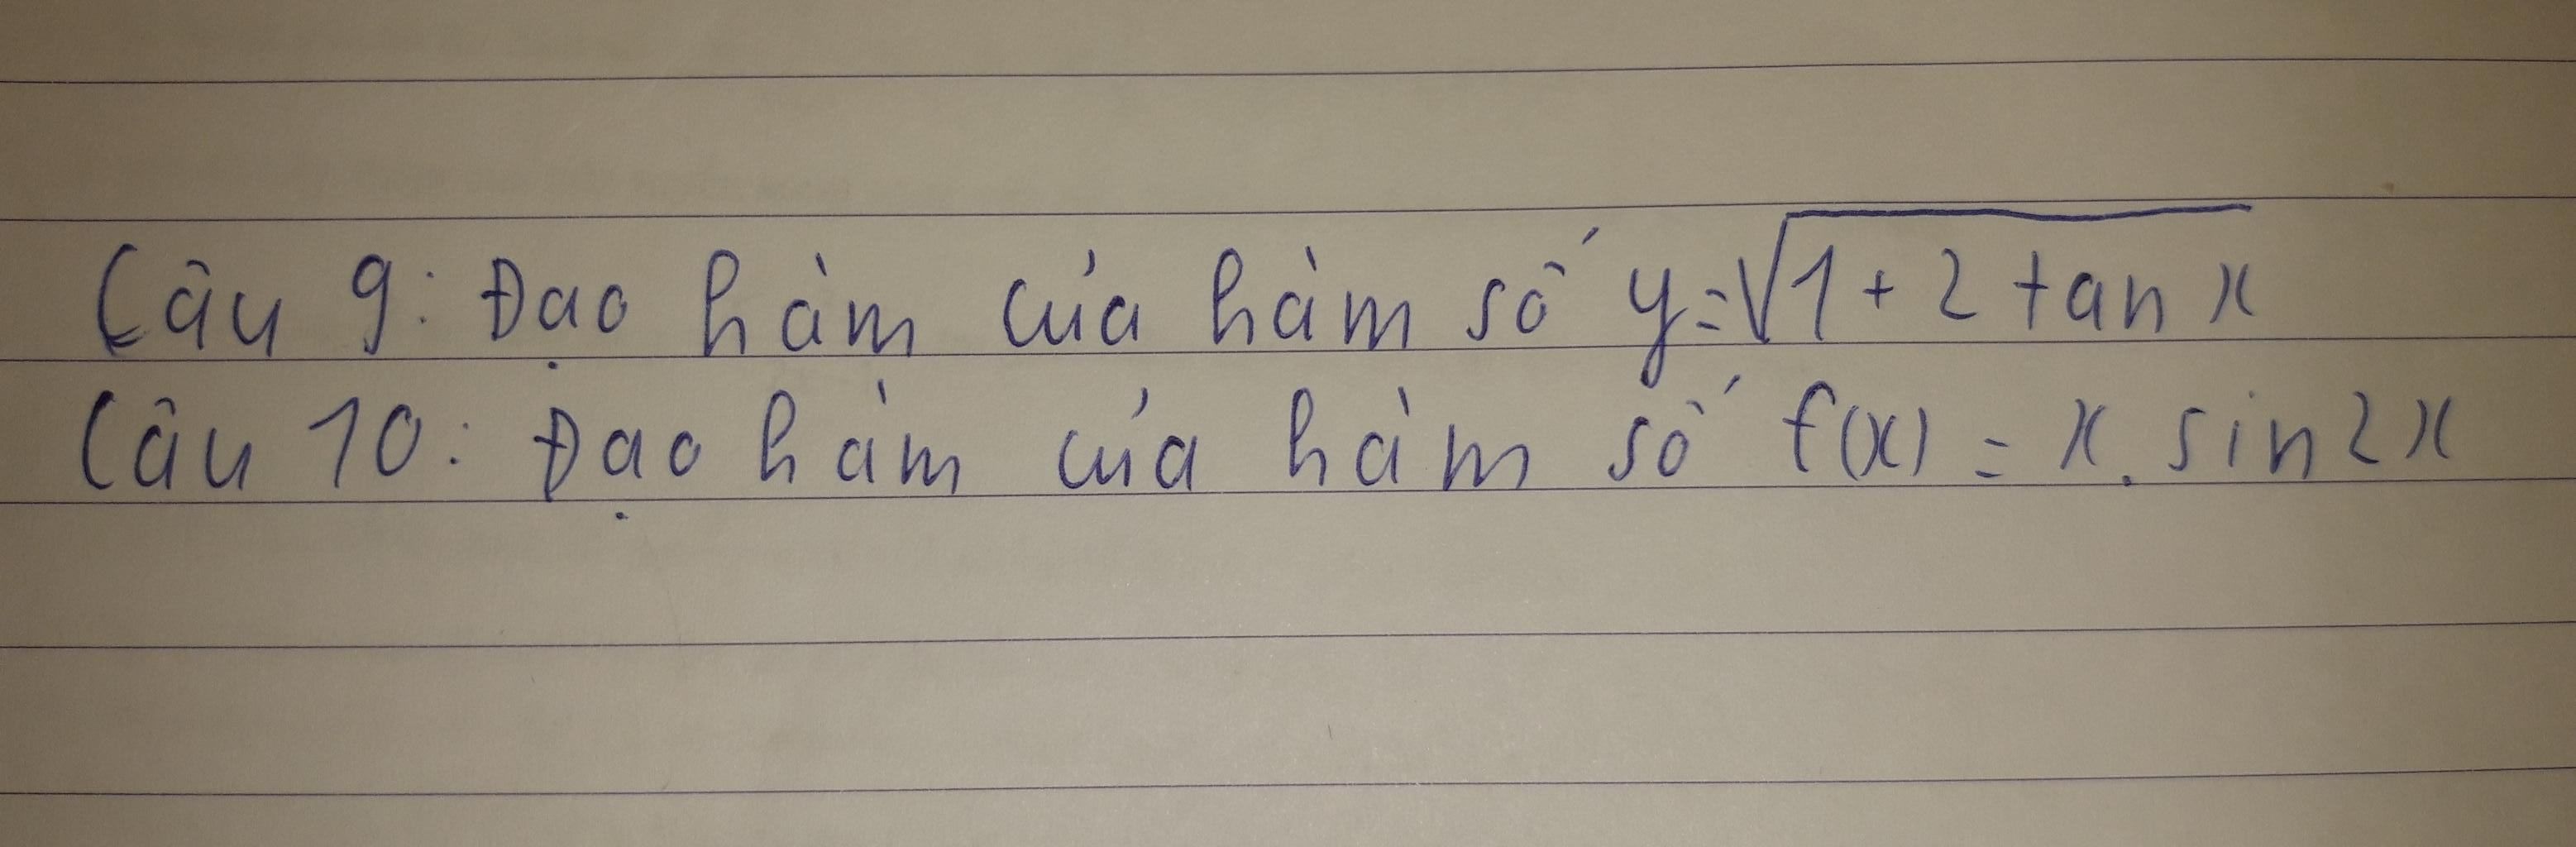 Câu 9: Đạo hàm của hàm số y=√1+2 tan x
Câu 10: Đạo hàm của hàm số f(x) = x. sin2x